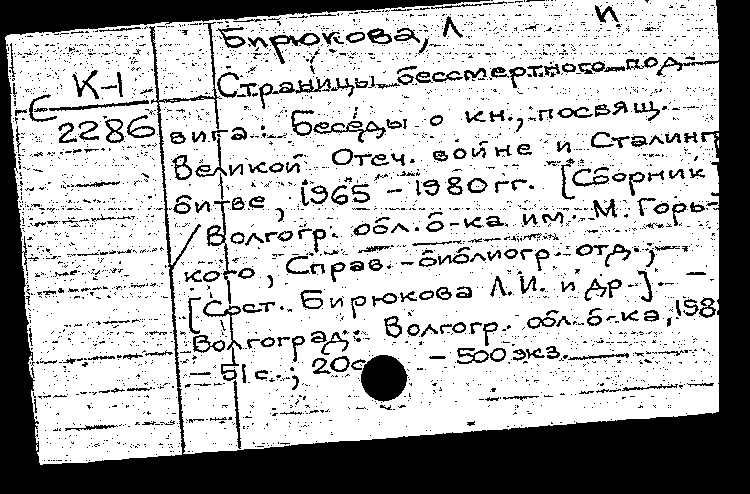 Бирюкова, Л
Страницы бессмертного под-
вига: Беседы о кн., посвящ.
Великой Отеч. войне и Сталингр
битве, 1965 - 1980 гг. [Сборник
/ Волгогр. обл. б-ка им. М. Горь-
кого, Справ.-библиогр. отд.;
[Сост. Бирюкова Л.И. и др.]. -
Волгоград: Волгогр. обл. б-ка, 198
- 51 с.; 20с - 500 экз.
С К-1
2286